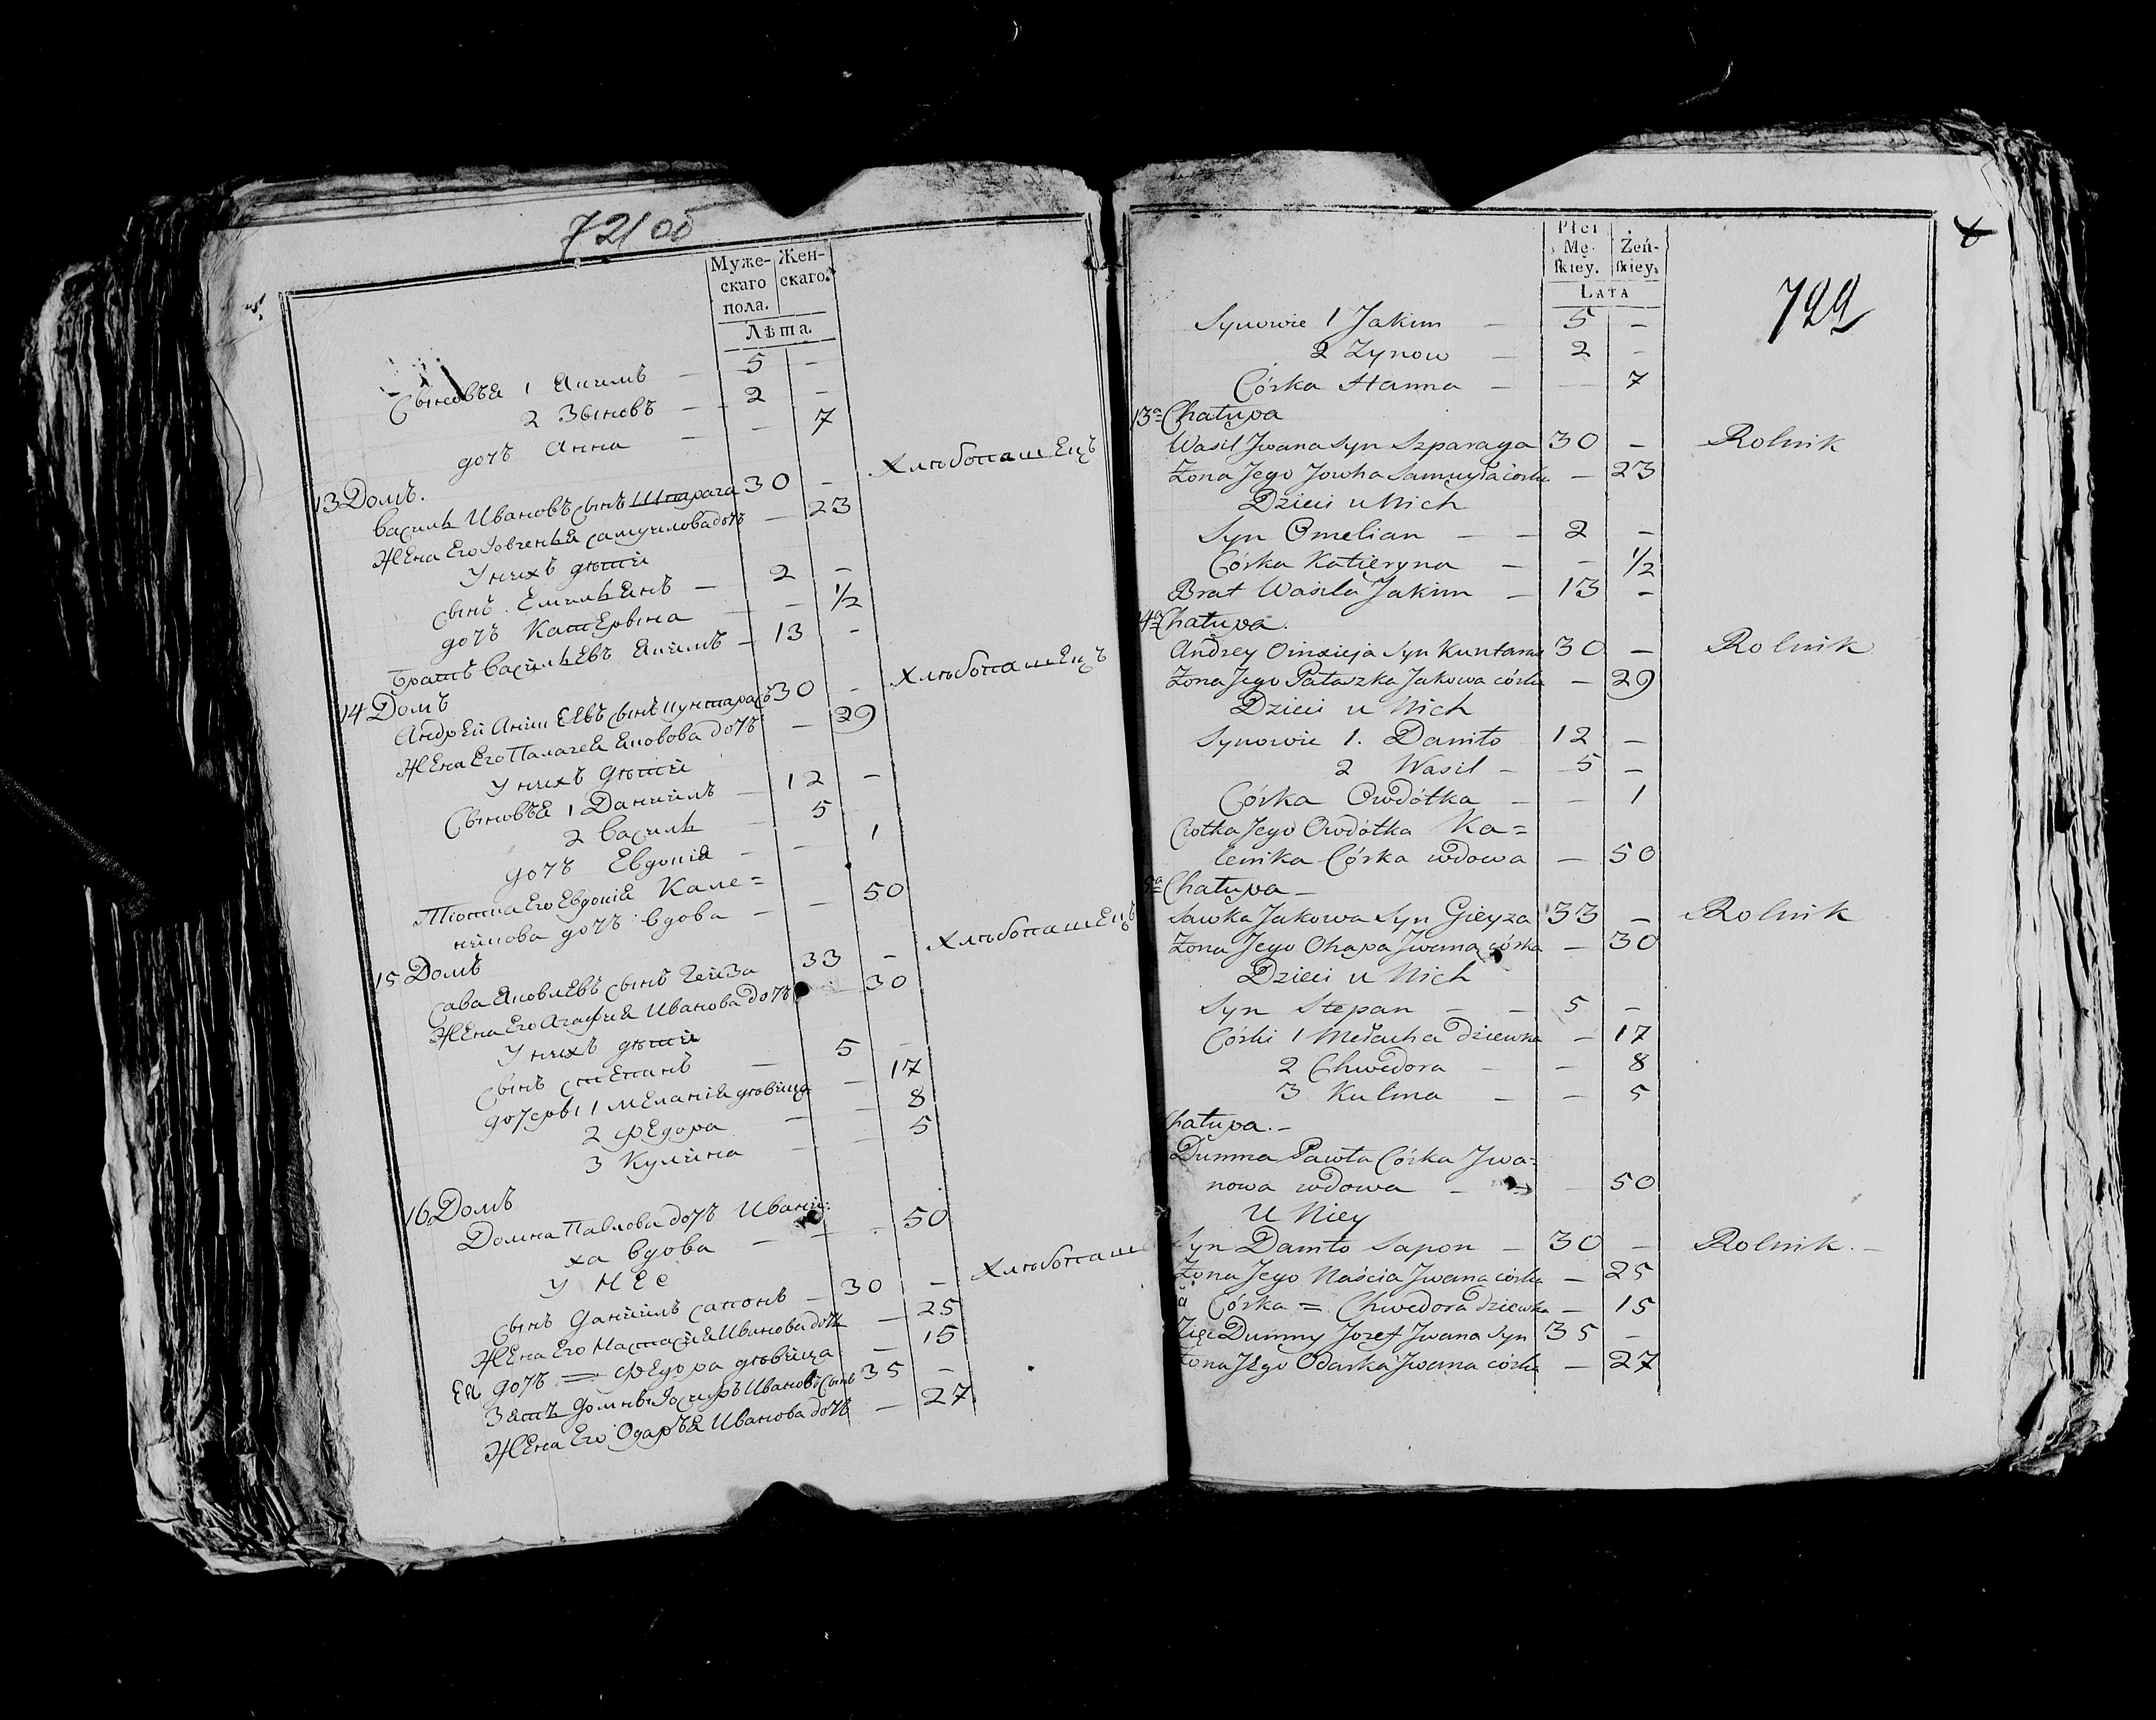 72/об
Муже- Жен-
скаго скаго.
пола.
Лѣта.
Сыновъя 1 Якимъ — 5 -
2 Зыновъ — 2 -
дочь Анна — - 7
13 Домъ.
Василь Ивановъ сынъ Шпарага 30 - Хлѣбопашецъ
Жена Его Іовгенья Самуилова дочь — 23
У нихъ дѣти
сынъ Емильянъ — 2 -
дочь Катерына — - 1/2
Братъ Васильевъ Якимъ — 13 -
14 Домъ
Андрей Аnisеевъ сынъ Кунтарасъ 30 - Хлѣбопашецъ
Жена Его Палагея Яковова дочь — 29
У нихъ дѣти
Сыновъя 1 Даниилъ — 12 -
2 Василь — 5
дочь Евдокія — - 1
Тіотка Его Евдокія Кале=
никова дочь вдова — - 50
15 Домъ
Сава Яковлевъ сынъ Гейза 33 - Хлѣбопашецъ
Жена Его Агафия Иванова дочь 30
У нихъ дѣти
Сынъ Степанъ — 5 -
дочеры 1 Меланія дѣвица — 17
2 Федора — - 8
3 Кулина — - 5
16 Домъ
Домна Павлова дочь Ивани=
ха вдова — - 50
У Нее
Сынъ Даниилъ Сапонъ — 30 - Хлѣбопаш
Жена Его Настасия Иванова дочь — 25
Ея дочь = Федора дѣвица — 15
Зять Домны Іосифъ Ивановъ сынъ 35 -
Жена Его Одаръя Иванова дочь — 27
Płci
Mę- Żeń-
skiey. skiey.
LATA
722
Synowie 1 Jakim — 5 -
2 Zynow — 2 -
Córka Hanna — — 7
13a Chałupa
Wasil Jwana Syn Szparaga 30 - Rolnik
Żona Jego Jowha Samuyła córka — 23
Dzieci u Nich
Syn Omelian — — 2 -
Córka Katieryna — - 1/2
Brat Wasila Jakim — 13 -
14a Chałupa.
Andrey Onisieja Syn Kuntaras 30 — Rolnik
Żona Jego Pałaszka Jakowa córka — 29
Dzieci u Nich
Synowie 1. Daniło 12 —
2 Wasil — 5 —
Córka Owdótka — — 1
Ciotka Jego Owdótka Ka=
lenika Córka wdowa — 50
5a Chałupa —
Sawka Jakowa Syn Gieyza 33 — Rolnik
Żona Jego Ohapa Jwana córka — 30
Dzieci u Nich
Syn Stepan — — 5 -
Córki 1 Melanha dziewka — 17
2 Chwedora — — 8
3 Kulina — — 5
hałupa. —
Dumna Pawła Córka Jwa=
nowa wdowa — — 50
U Niey
Syn Daniło Sapon — 30 — Rolnik. —
Żona Jego Naścia Jwana córka — 25
Córka = Chwedora dziewka — 15
Zięć Dumny Jozef Jwana Syn 35 —
Żona Jego Odarka Jwana córka — 27